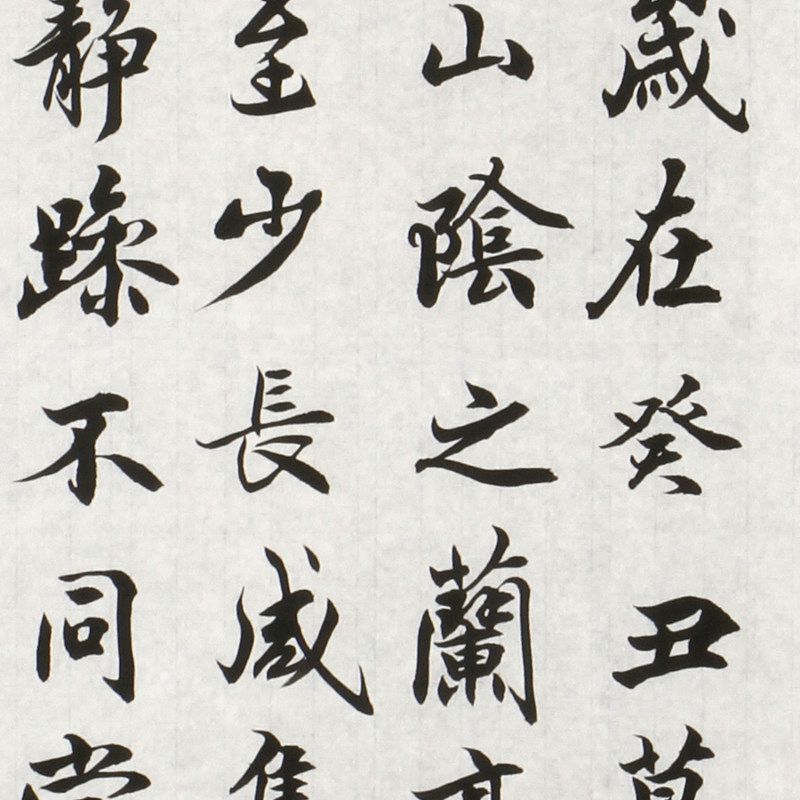 歲在癸丑暮
山陰之蘭亭
至少長咸集
靜躁不同當